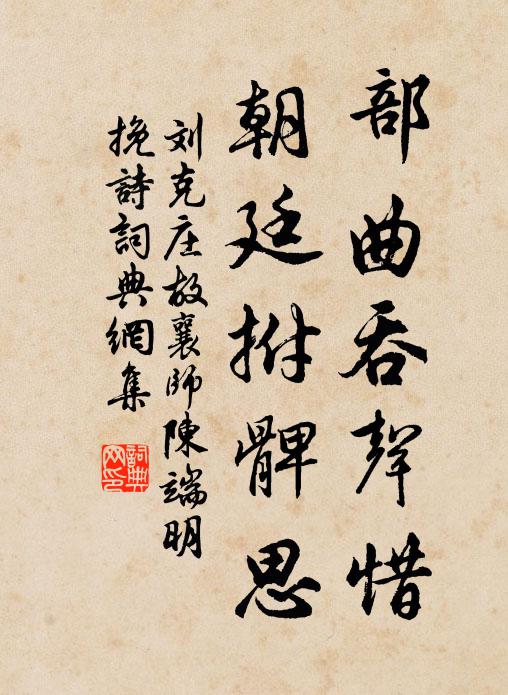 部曲吞聲惜
朝廷拊髀思
刘克庄故襄師陳端明
挽詩詞典網集
詞典网印